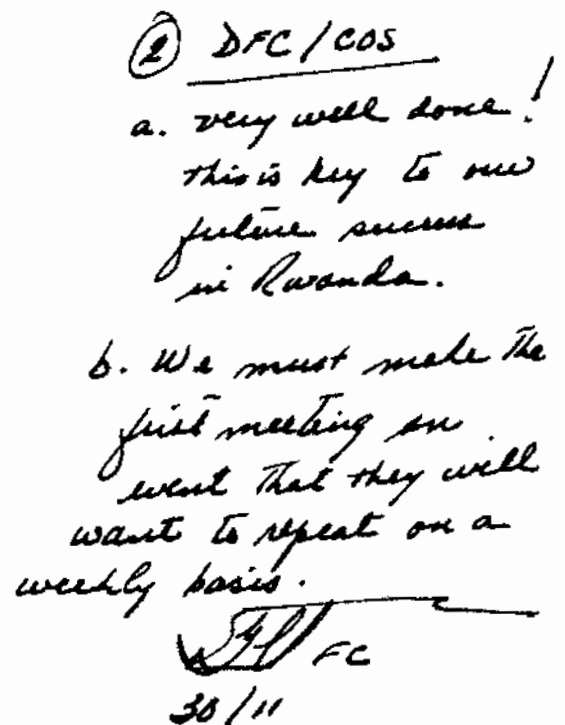 ② DFC/COS
a. very well done!
this is key to our
future success
in Rwanda.
b. We must make the
first meeting an
event that they will
want to repeat on a
weekly basis.
FC
30/11